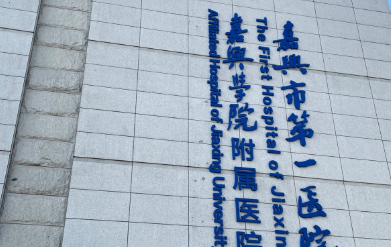 嘉興市第一医院
The First Hospital of Jiaxin
嘉興学院附属医院
Affiliated Hospital of Jiaxing University